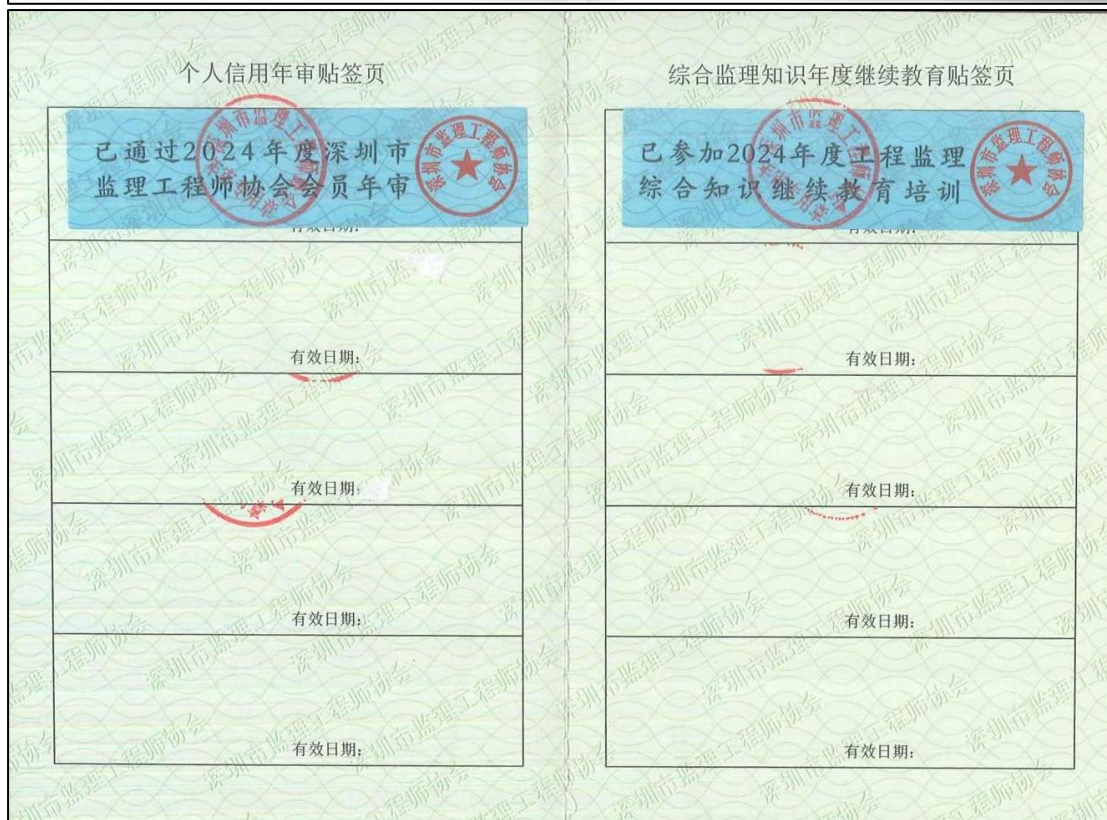 个人信用年审贴签页
已通过2024年度深圳市
监理工程师协会会员年审
深圳市监理工程师协会
有效日期:
有效日期:
有效日期:
有效日期:
有效日期:
综合监理知识年度继续教育贴签页
已参加2024年度工程监理
综合知识继续教育培训
深圳市监理工程师协会
有效日期:
有效日期:
有效日期:
有效日期:
有效日期: